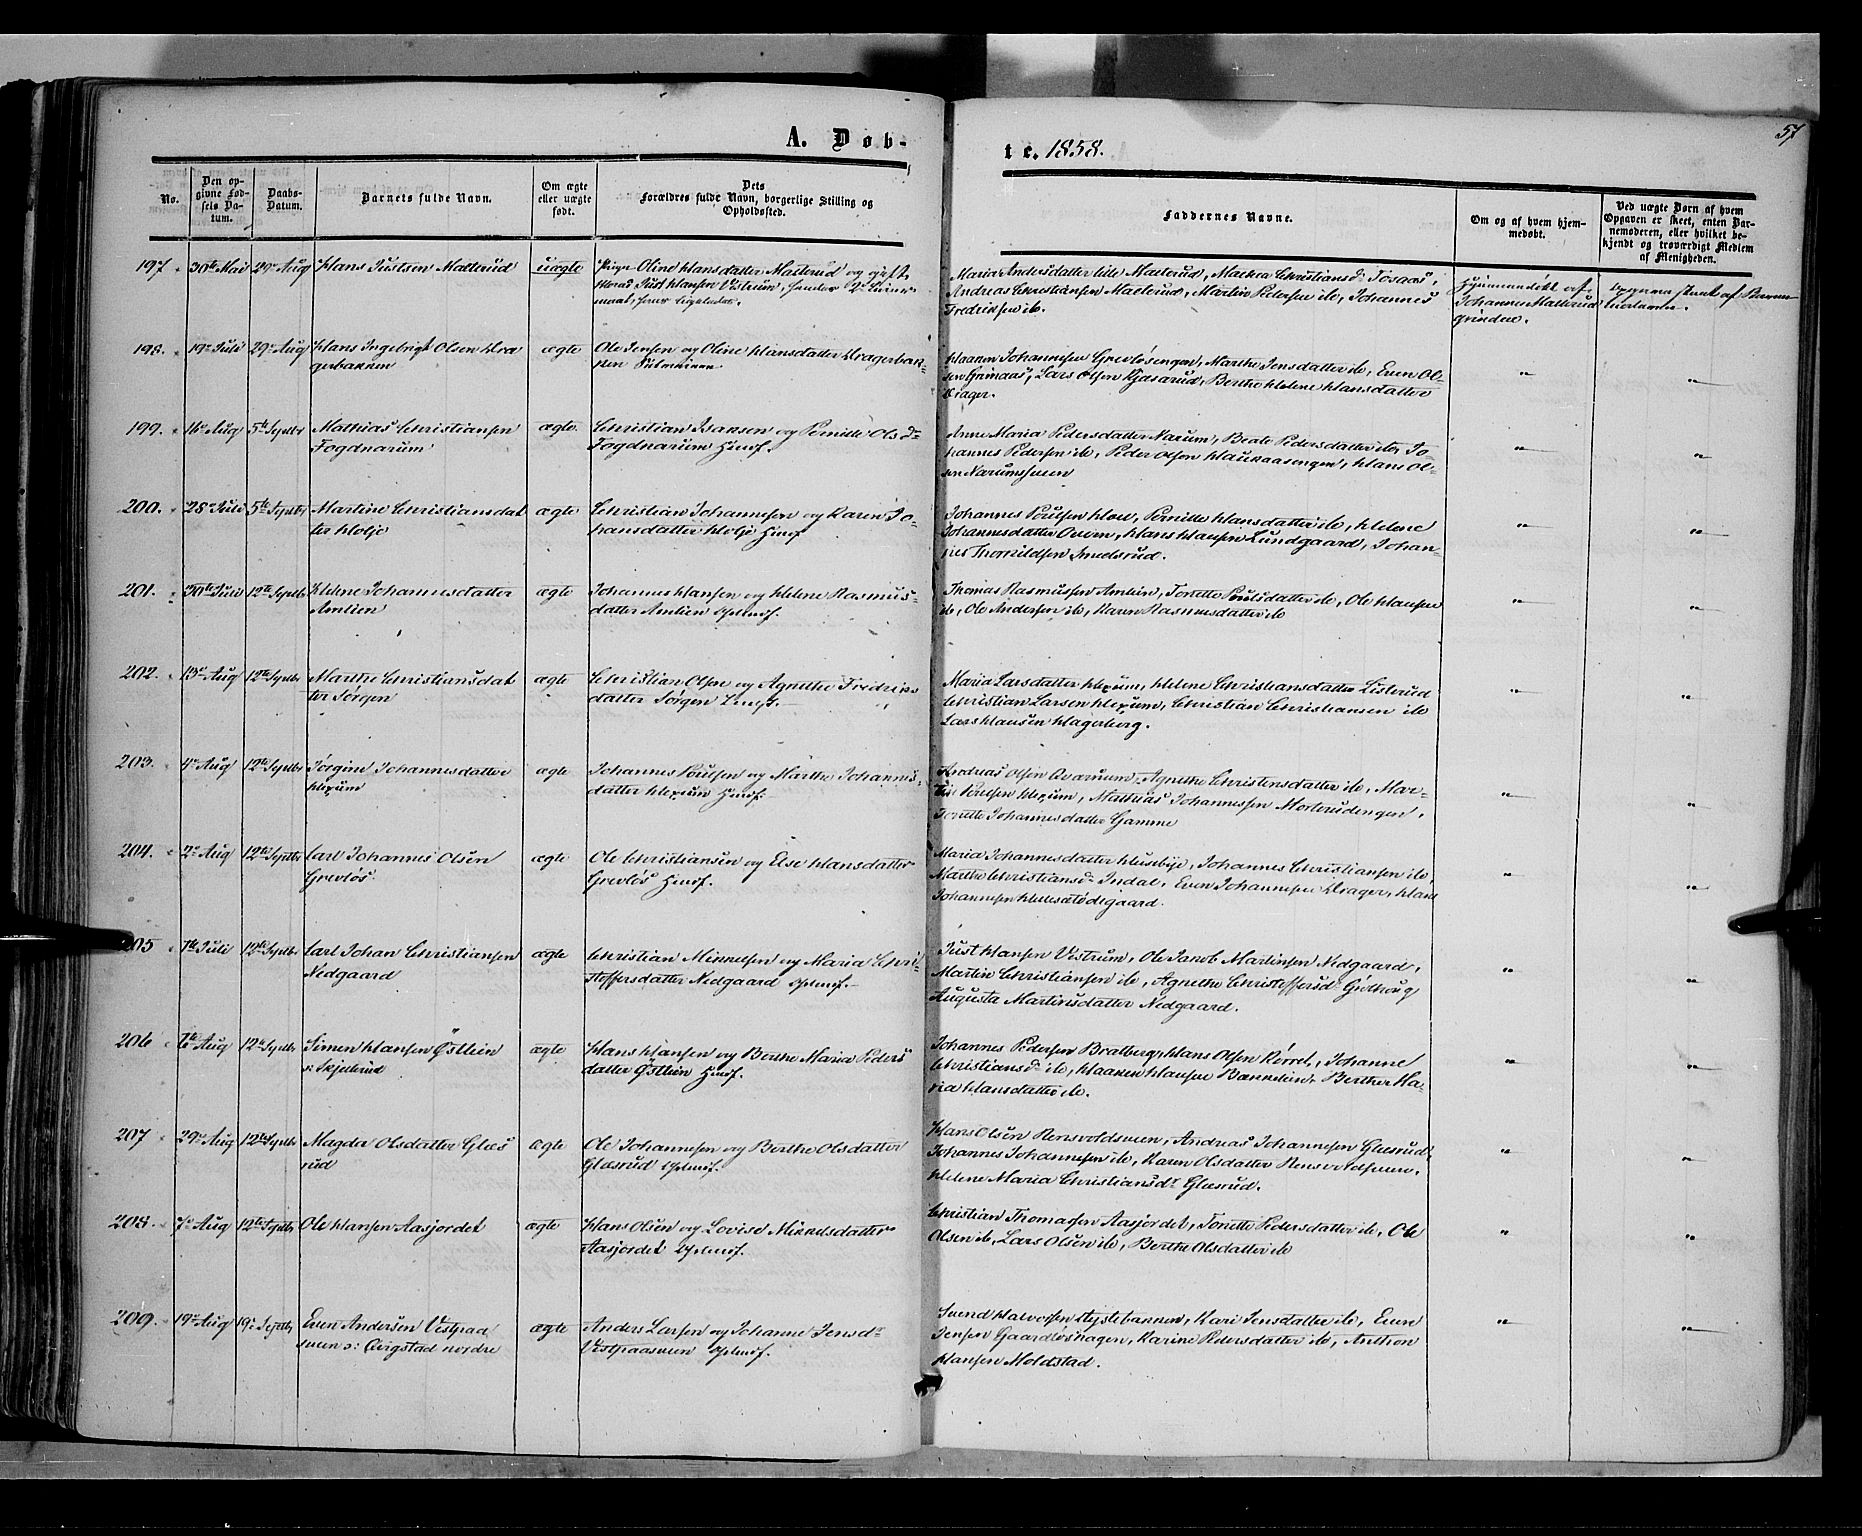 A. Døb-
te. 1858.
57
No.
Den op-
givne Fød-
sels Da-
tum.
Daabs-
Datum.
Barnets fulde Navn.
Om ægte
eller uægte
født.
Dets
Forældres fulde Navn, borgerlige Stilling og
Opholdssted.
Faddernes Navne.
Om og af hvem hjem-
medøbt.
Ved uægte Børn af hvem
Opgaven er skeet, enten Bar-
nemoderen, eller hvilket be-
kjendt og troværdigt Medlem
af Menigheden.
197. 30te Mai 29de Aug Hans Justsen Mælerud uægte Pige Oline Hansdatter Mælerud og gift
Just Hansen Vistrum,
Maria Andersdatter ibd Mælerud, Mathea Christiansd:
Andreas Christiansen Mælerud, Martin Pedersen ib, Johannes
Fredriksen ib.
Hjemmedøbt af
Johannes Mælerud
198. 19de Juli 29de Aug Hans Ingebrigt Olsen Dra
gerbakken
ægte
Ole Jensen og Oline Hansdatter Dragerbak-
ken
Haaken Johannesen Grevløsengen, Marthe Jensdatter ib, Even Ol-
sen Grinaas, Lars Olsen Kjøsarud, Berthe Helene Hansdatter
Drager.
„ „
199. 16de Aug 5te Septbr Mathias Christiansen
Fogdnarum
ægte
Christian Isaksen og Pernille Olsd
Fogdnarum Huusf.
Anne Maria Pedersdatter Narum, Beate Pedersdatter ib, Jo-
hannes Pedersen ib, Peder Olsen Haukaasengen, Hans Ol-
sen Narumshuen
„ „
200. 28de Juli 5te Septbr Martine Christiansdat
ter Holje
ægte
Christian Johannesen og Karen Jo-
hansdatter Holje Huusf
Johannes Poulsen Hoel, Pernille Hansdatter ib, Helene
Johannesdatter Overn, Hans Hansen Lundgaard, Johan-
nes Thorkildsen Smedsrud.
„ „
201. 30te Juli 12te Septbr Helene Johannesdatter
Amlien
ægte
Johannes Hansen og Helene Rasmus-
datter Amlien
Thomas Rasmussen Amlien, Tonette Poulsdatter ib, Ole Hansen
ib, Ole Andersen ib, Karen Rasmusdatter ib
„ „
202. 13de Aug 12te Septbr Marthe Christiansdat
ter Jørgen
ægte
Christian Olsen og Agnethe Fredriks
datter Jørgen
Maria Larsdatter Hexum, Helene Christiansdatter Listerud
Christian Larsen Hexum, Christian Christiansen ib
Lars Hansen Hagerberg.
„ „
203. 4de Aug 12te Septbr Jørgine Johannesdatter
Hexum
ægte
Johannes Poulsen og Marthe Johannes-
datter Hexum Huusf.
Andreas Olsen Qvarnum, Agnethe Christensdatter ib, Mar-
tin Poulsen Hexum, Mathias Johannesen Morterudengen,
Tonette Johannesdatter Gamme
„ „
204. 2de Aug 12te Septbr Carl Johannes Olsen
Grevløs
ægte
Ole Christiansen og Else Hansdatter
Grevløs Huusf.
Maria Johannesdatter Huseby, Johannes Christiansen ib,
Marthe Christiansd: Indal, Even Johannesen Drager, Hans
Johannesen
„ „
205 7de Juli 12te Septbr Carl Johan Christiansen
Nedgaard
ægte
Christian Mikkelsen og Maria Chri-
stoffersdatter Nedgaard
Just Hansen Vistrum, Ole Jacob Martinsen Nedgaard,
Martin Christiansen ib, Agnethe Christoffersd:
Augusta Martinsdatter Nedgaard.
„ „
206 6te Aug 12te Septbr Simen Hansen Østlien
s: Skjellerud
ægte
Hans Hansen og Berthe Maria Peders
datter Østlien Huusf.
Johannes Pedersen Bratberg, Hans Olsen, Johanne
Christiansd: ib, Haaken Hansen, Berthe Ma-
ria Hansdatter ib.
„ „
207 29de Aug 12te Septbr Magda Olsdatter Glæs
rud
ægte
Ole Johannesen og Berthe Olsdatter
Glæsrud
Hans Olsen Rensvoldseien, Andreas Johannesen Glæsrud,
Johannes Johannesen ib, Karen Olsdatter Rensvoldseien,
Helene Maria Christiansdr Glæsrud.
„ „
208. 7de Aug 12te Septbr Ole Hansen Aasjordet ægte
Hans Olsen og Lovise Mikkelsdatter
Aasjordet
Christian Thomasen Aasjordet, Tonette Pedersdatter ib, Ole
Olsen ib, Lars Olsen ib, Berthe Olsdatter ib
„ „
209. 19de Aug 19de Septbr Even Andersen Vestraa
seien s: Qvigstad nordre
ægte
Anders Larsen og Johanne Jensdr
Vestraaseien
Svend Halvorsen, Kari Jensdatter ib, Even
Jensen Gaardløshagen, Karine Pedersdatter ib, Anthon
Hansen Moldstad.
„ „